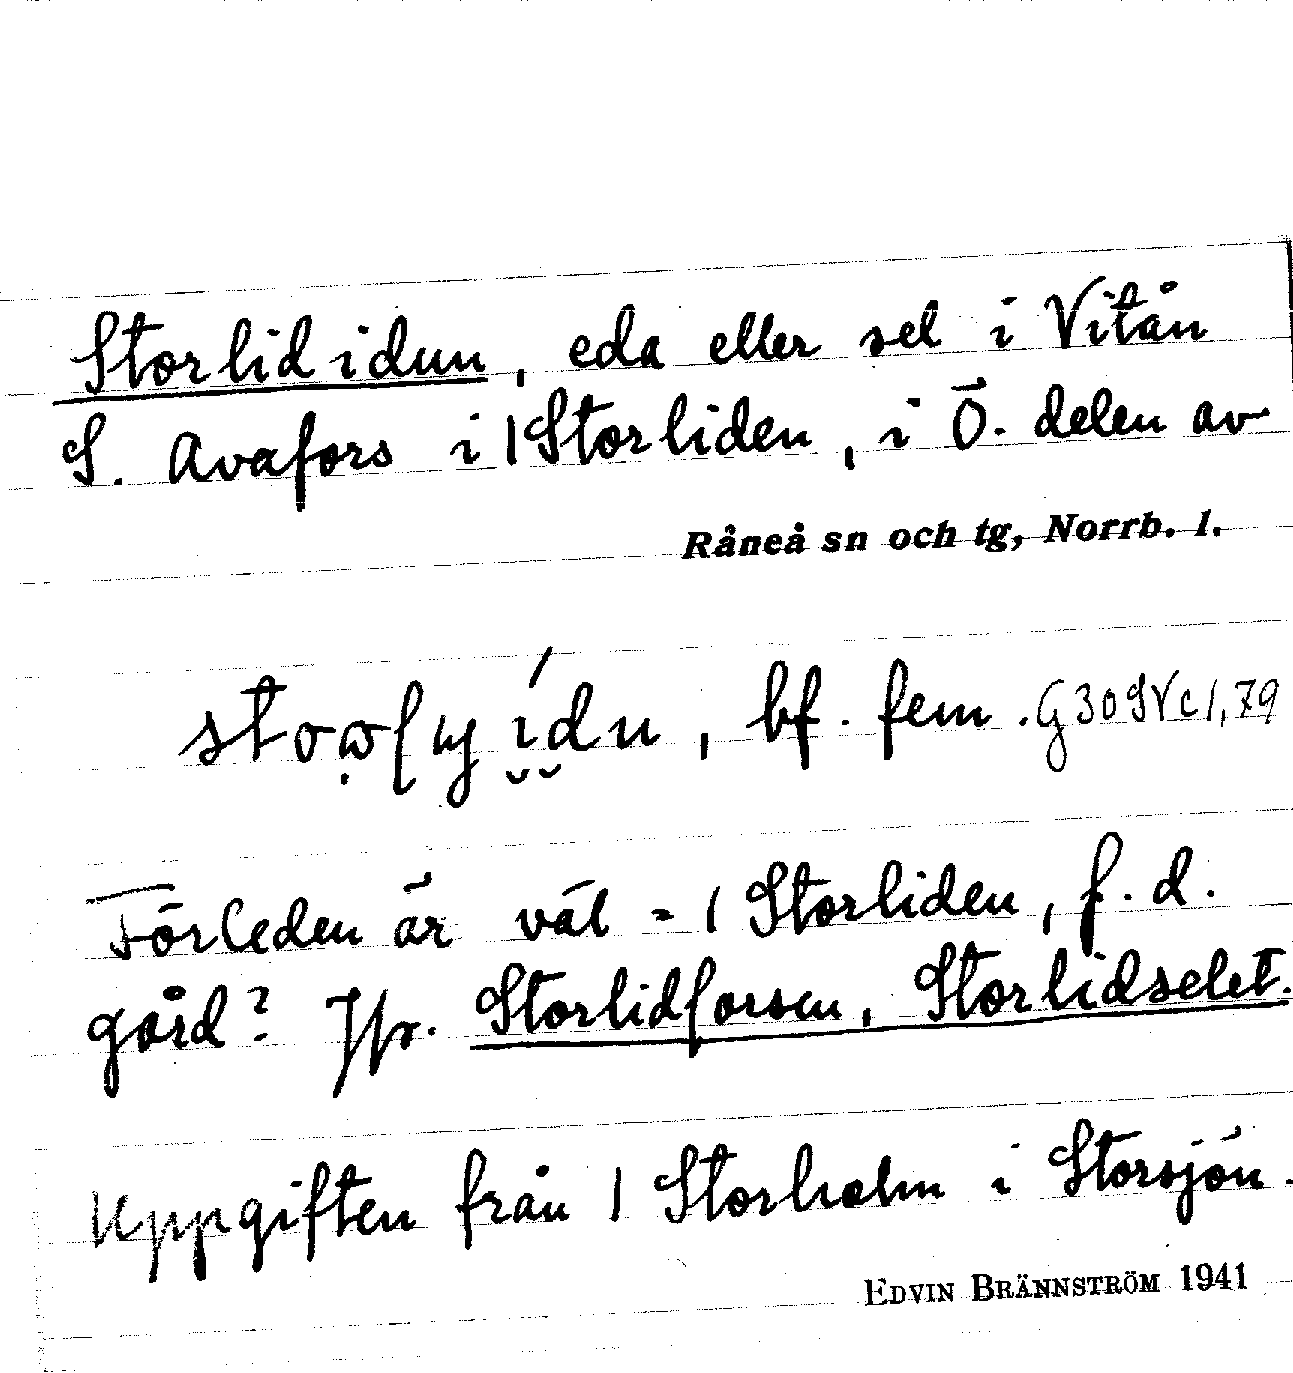 Storlididun, eda eller sel i Vitån
S. Avafors i 1 Storliden, i Ö. delen av
Råneå sn och tg, Norrb. l.
bf. fem. G309Vc1,79
Förleden är väl = 1 Storliden, f. d.
gård? Jfr. Storlidforsen, Storlidselet.
Uppgiften från 1 Storholm i Storsjön.
EDVIN BRÄNNSTRÖM 1941